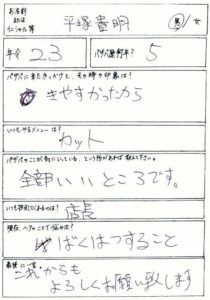 お名前
又は
イニシャル等
平塚貴明
男/女
年令 23
パザパ歴何年? 5
パザパに来たきっかけと、その時の印象は?
きやすかったから
いつもやるメニューは?
カット
パザパのここが気にいっている、という所があれば教えて下さい。
全部いいところです。
いつも担当してくれるのは?
店長
現在、ヘアのことで悩みは?
ばくはつすること
最後に一言
これからも
よろしくお願い致します